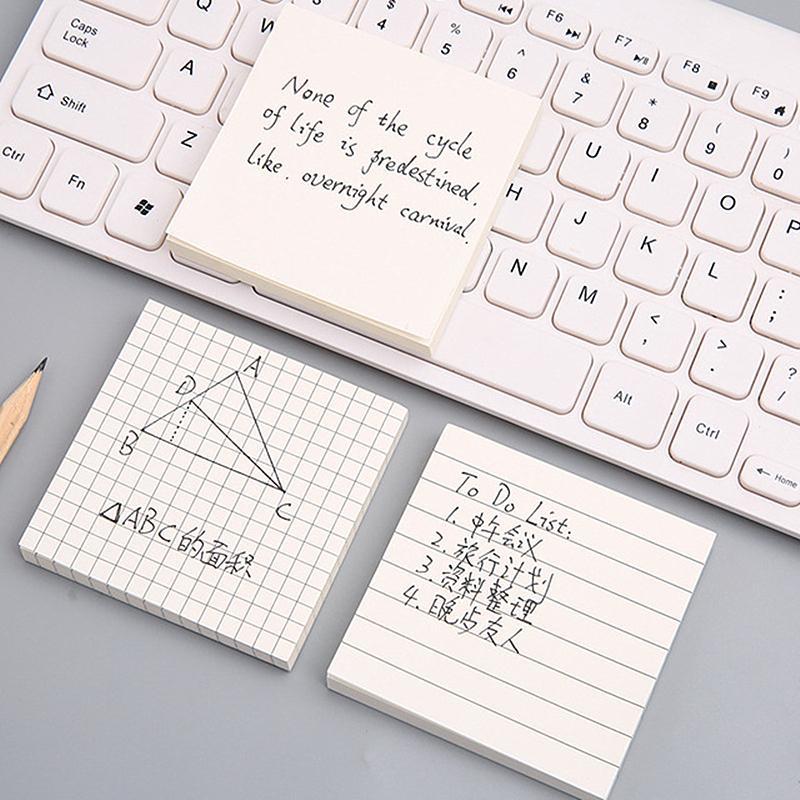 None of the cycle
of life is predestined.
like. overnight carnival.
A
D
B
C
△ABC的面积
To Do List:
1. 中午会议
2. 旅行计划
3. 资料整理
4. 晚 友人
Caps Lock
Q
$ 4
% 5
^ 6
& 7
* 8
( 9
) 0
F6
F7
F8
F9
A
Shift
Z
Ctrl
Fn
U
I
O
P
H
J
K
L
: ;
N
M
< ,
> .
? /
Alt
Ctrl
Home